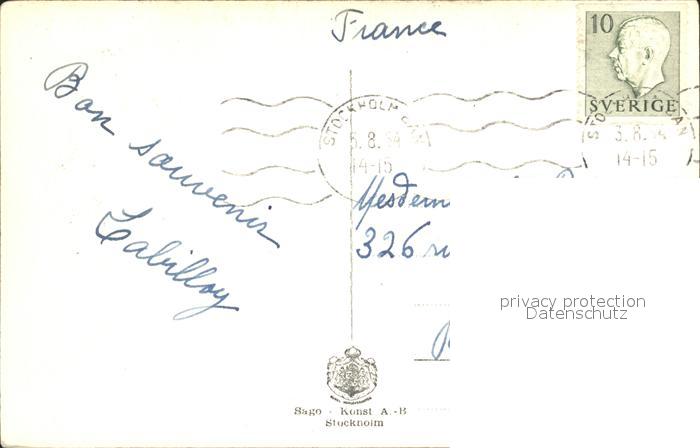 France
10
SVERIGE
STOCKHOLM BAN
5.8.54
14-15
3.8.54
14-15
Bon souvenir
Labilloy
326
privacy protection
Datenschutz
Sago · Konst A.-B
Stockholm